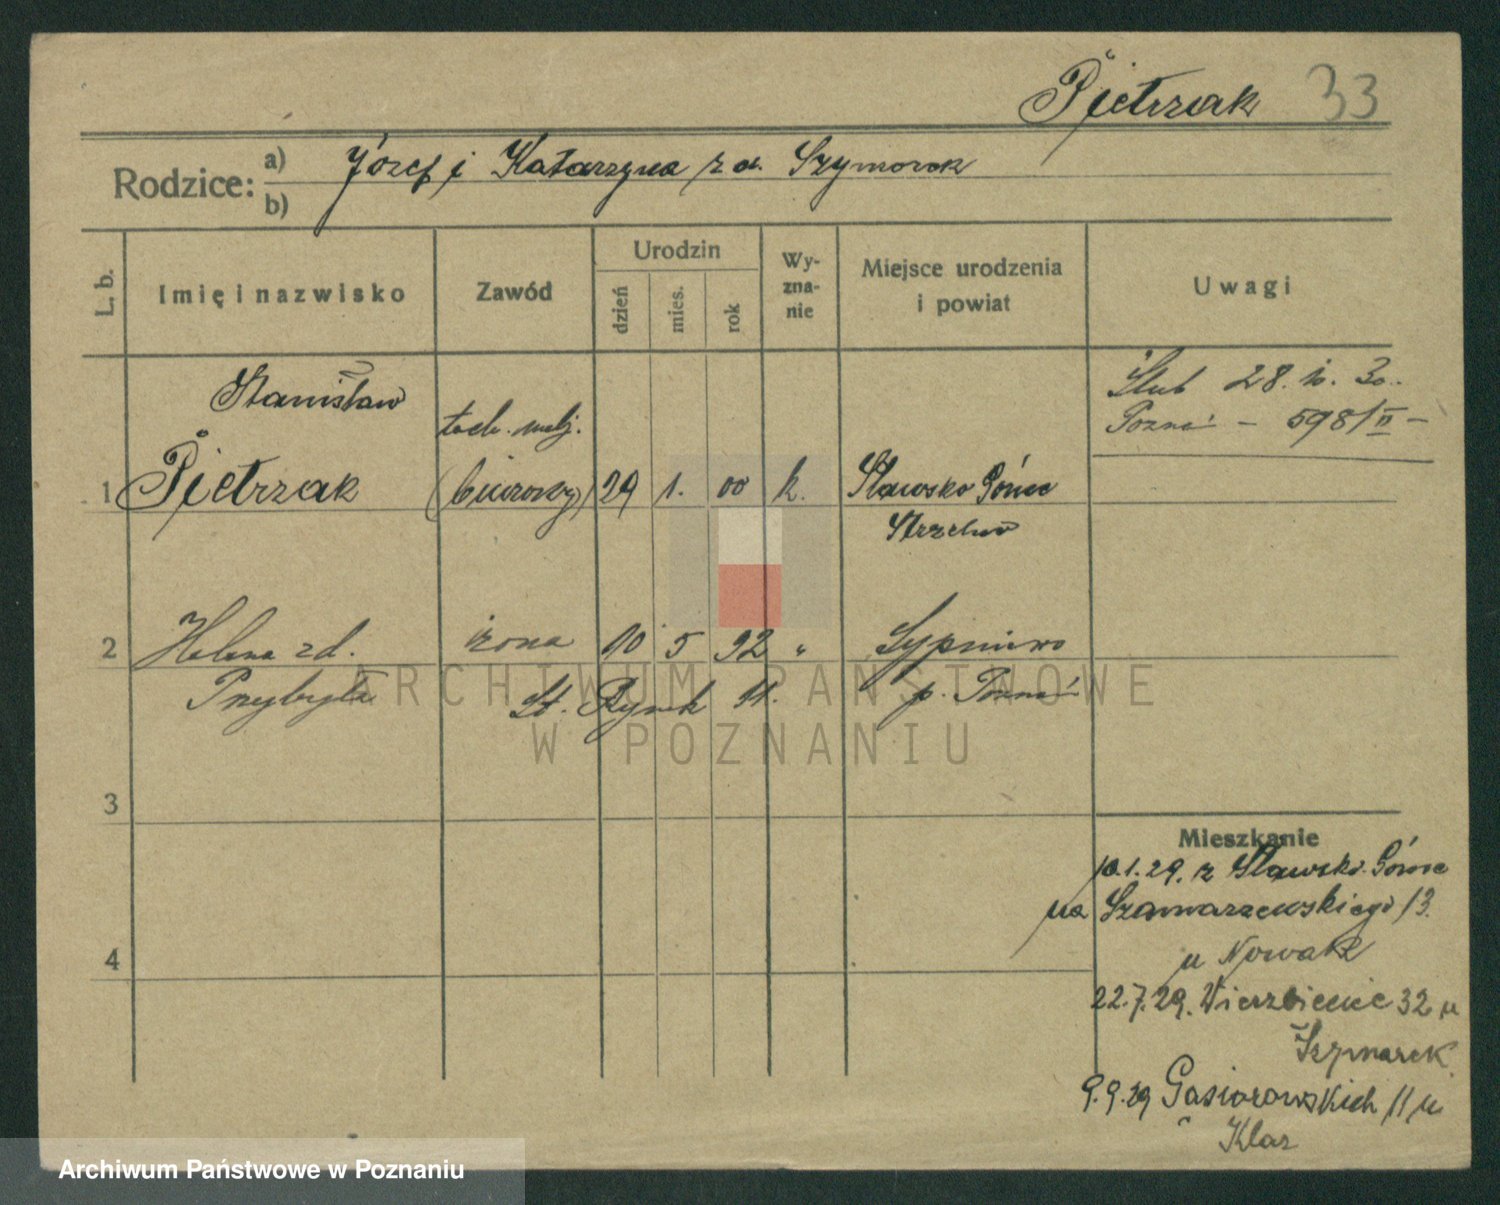 Pietrzak 33
Rodzice: a) Józef i Katarzyna z d. Szymorok
b)
L. b. Imię i nazwisko Zawód Urodzin dzień mies. rok Wy-zna-nie Miejsce urodzenia i powiat Uwagi
Stanisław
Ślub 28. 10. 30.
Poznań – 598/II –
1 Pietrzak (biurowy) 29 1. 00 k. Sławsko Górne
Strzelno
2 Helena zd. żona 10 5 92 " Sypniewo
Przybyła St. Rynek 11. p. Poznań
ARCHIWUM PAŃSTWOWE
W POZNANIU
3
Mieszkanie
10.1.29. z Sławsko Górne
na Szamarzewskiego 13.
4
u Nowak
22.7.29. Wierzbięcice 32 u
Szymarek
9.9.29 Gąsiorowskich 11 u
Klar
Archiwum Państwowe w Poznaniu